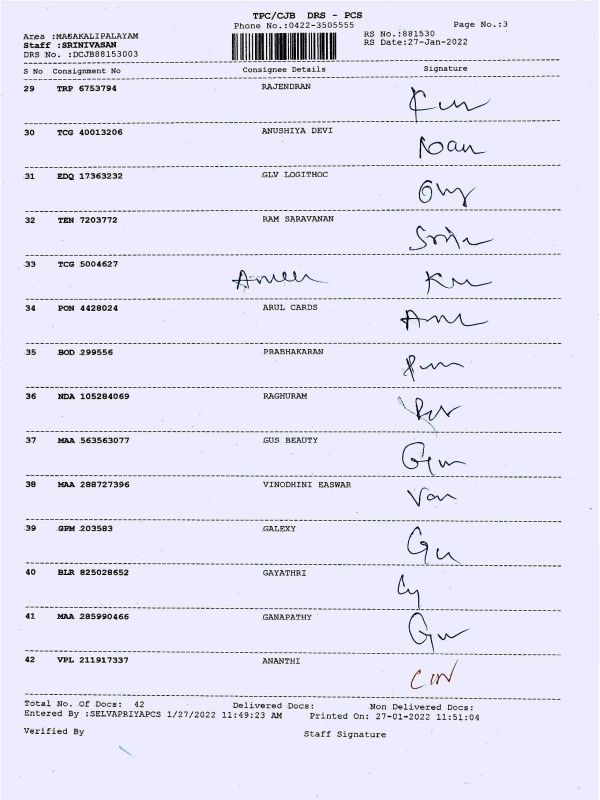 TPC/CJB DRS - PCS
Phone No.:0422-3505555 Page No.:3
Area :MASAKALIPALAYAM RS No.:881530
Staff :SRINIVASAN RS Date:27-Jan-2022
DRS No. :DCJB88153003
S No Consignment No Consignee Details Signature
29 TRP 6753794 RAJENDRAN
30 TCG 40013206 ANUSHIYA DEVI
31 EDQ 17363232 GLV LOGITHOC
32 TEN 7203772 RAM SARAVANAN
33 TCG 5004627
34 PON 4428024 ARUL CARDS
35 BOD 299556 PRABHAKARAN
36 NDA 105284069 RAGHURAM
37 MAA 563563077 GUS BEAUTY
38 MAA 288727396 VINODHINI EASWAR
39 GPM 203583 GALEXY
40 BLR 825028652 GAYATHRI
41 MAA 285990466 GANAPATHY
42 VPL 211917337 ANANTHI
Total No. Of Docs: 42 Delivered Docs: Non Delivered Docs:
Entered By :SELVAPRIYAPCS 1/27/2022 11:49:23 AM Printed On: 27-01-2022 11:51:04
Verified By Staff Signature